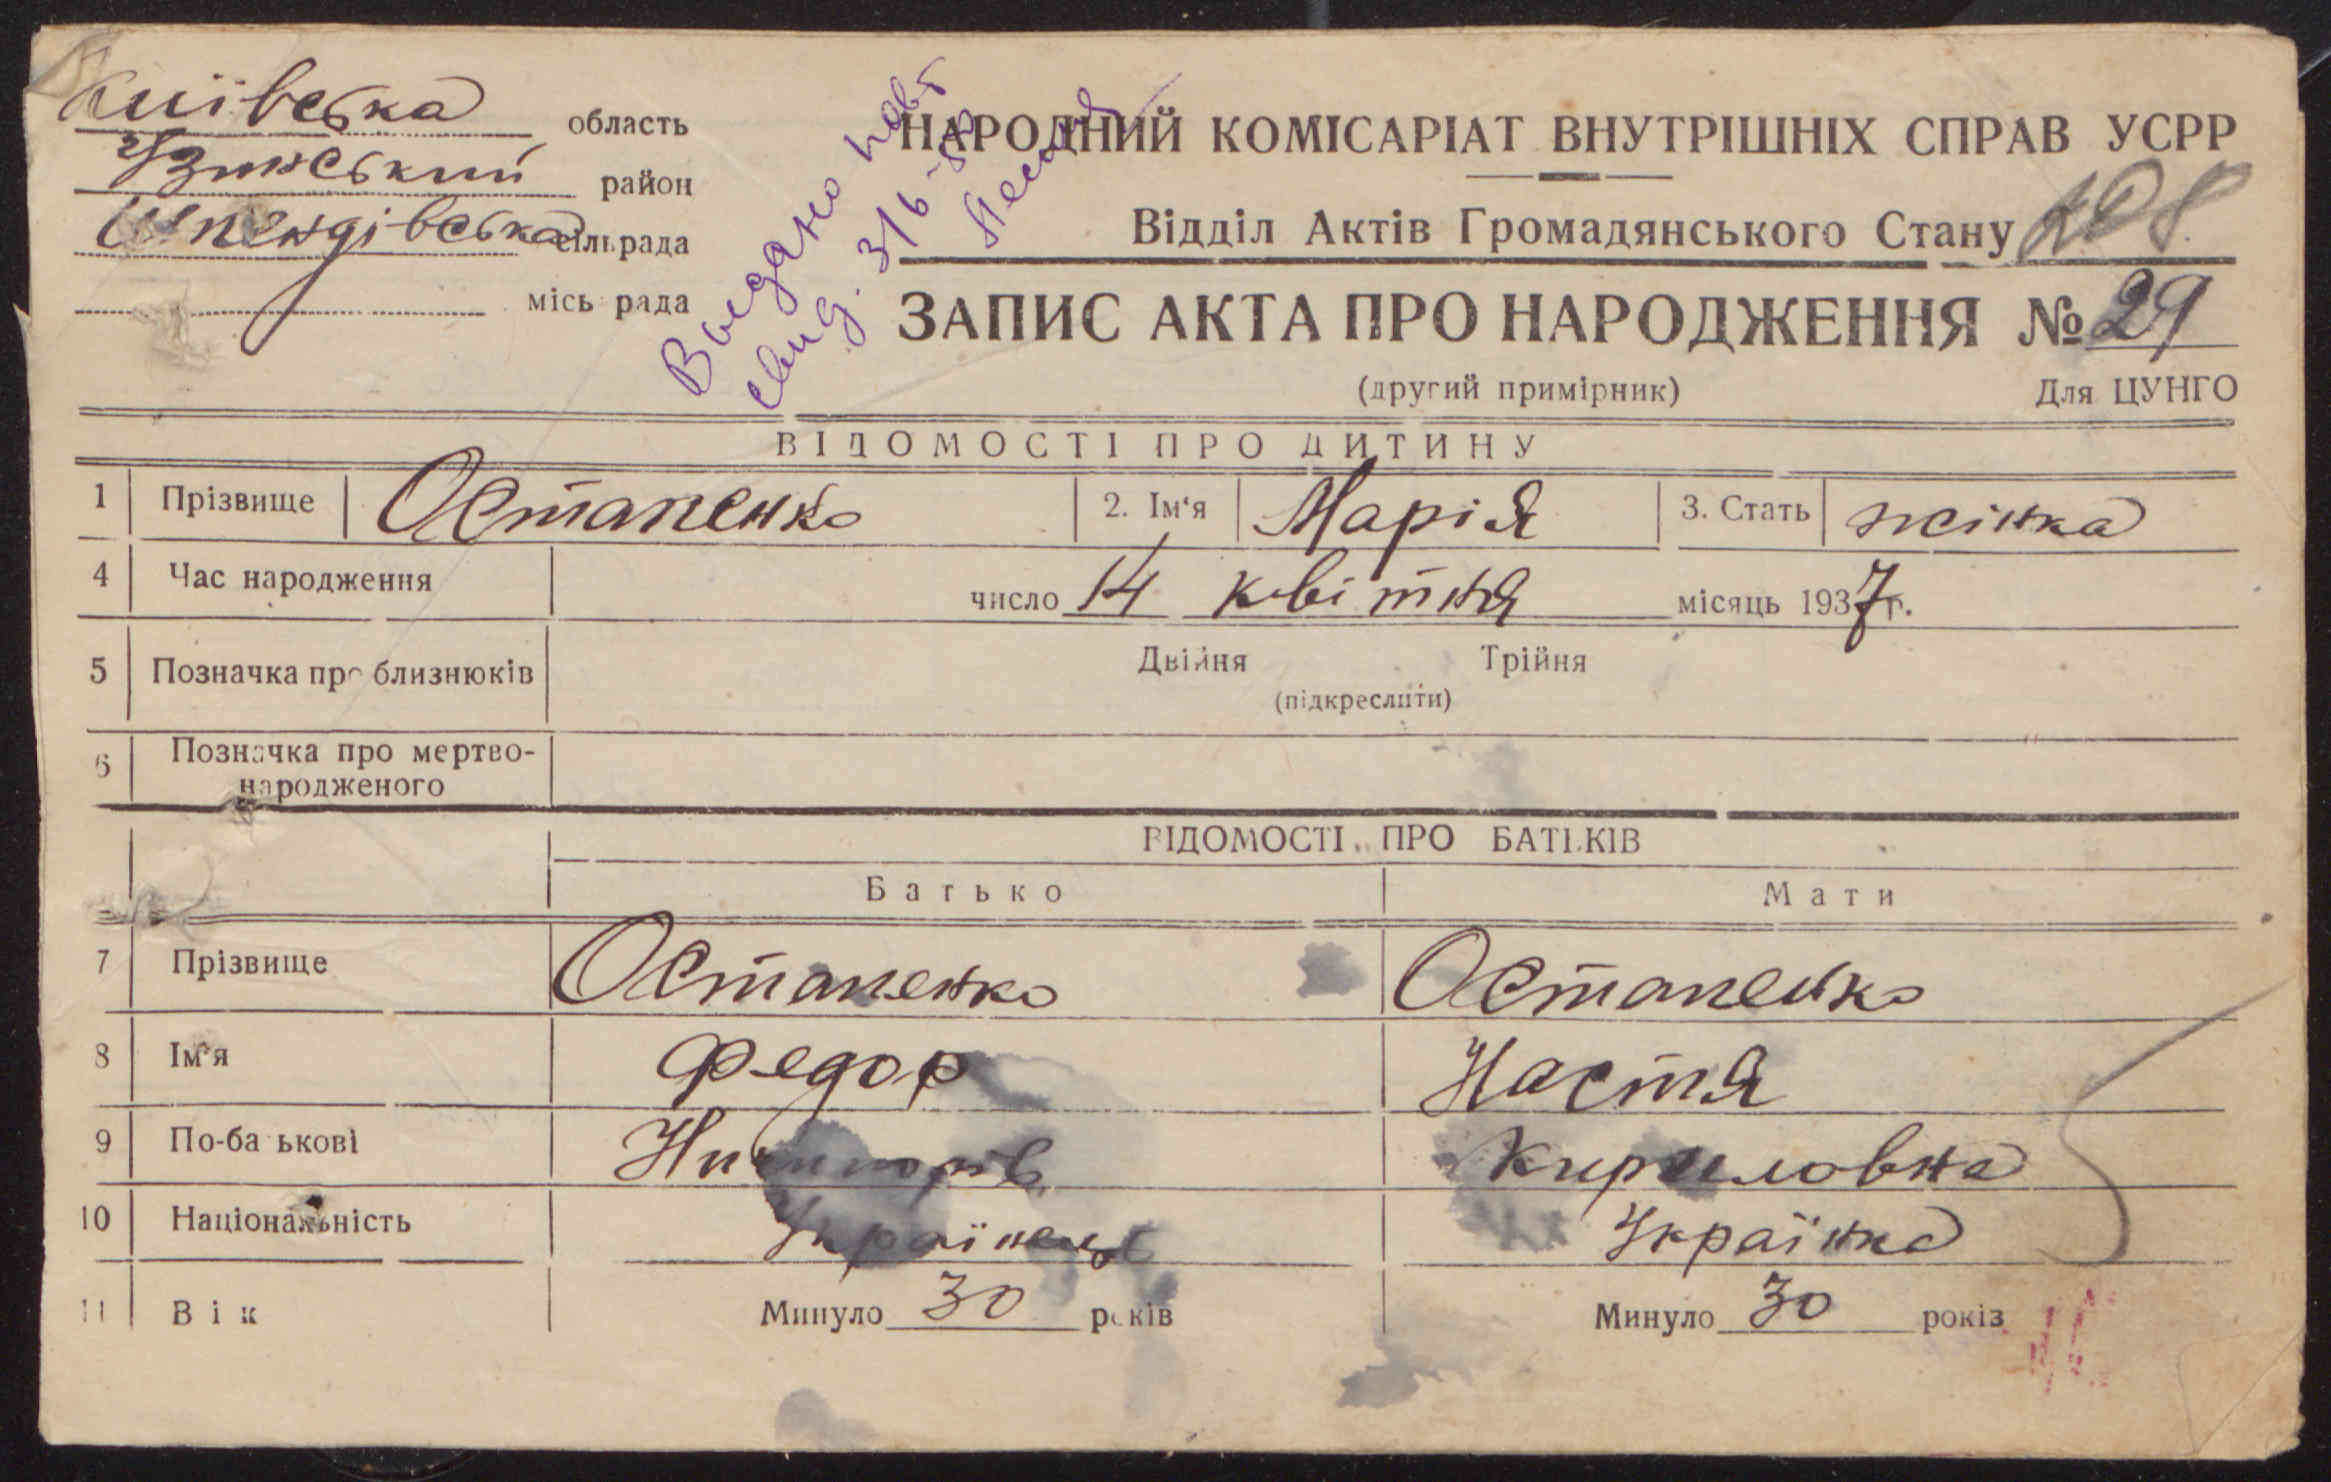 Київська область
Узинський район
Шпендівська сільрада
місь рада
Выдано повт
свид. 3/6-
НАРОДНИЙ КОМІСАРІАТ ВНУТРІШНІХ СПРАВ УСРР
Відділ Актів Громадянського Стану 208
ЗАПИС АКТА ПРО НАРОДЖЕННЯ № 29
(другий примірник) Для ЦУНГО
ВІДОМОСТІ ПРО ДИТИНУ
1 Прізвище Остапенко 2. Ім'я Марія 3. Стать жінка
4 Час народження число 14 квітня місяць 1937 г.
5 Позначка про близнюків Двійня Трійня
(підкреслити)
6 Позначка про мертво-
народженого
ВІДОМОСТІ ПРО БАТЬКІВ
Батько Мати
7 Прізвище Остапенко Остапенко
8 Ім'я Федор Настя
9 По-ба ькові Кириловна
10 Національність Українець Українка
11 Вік Минуло 30 років Минуло 30 років